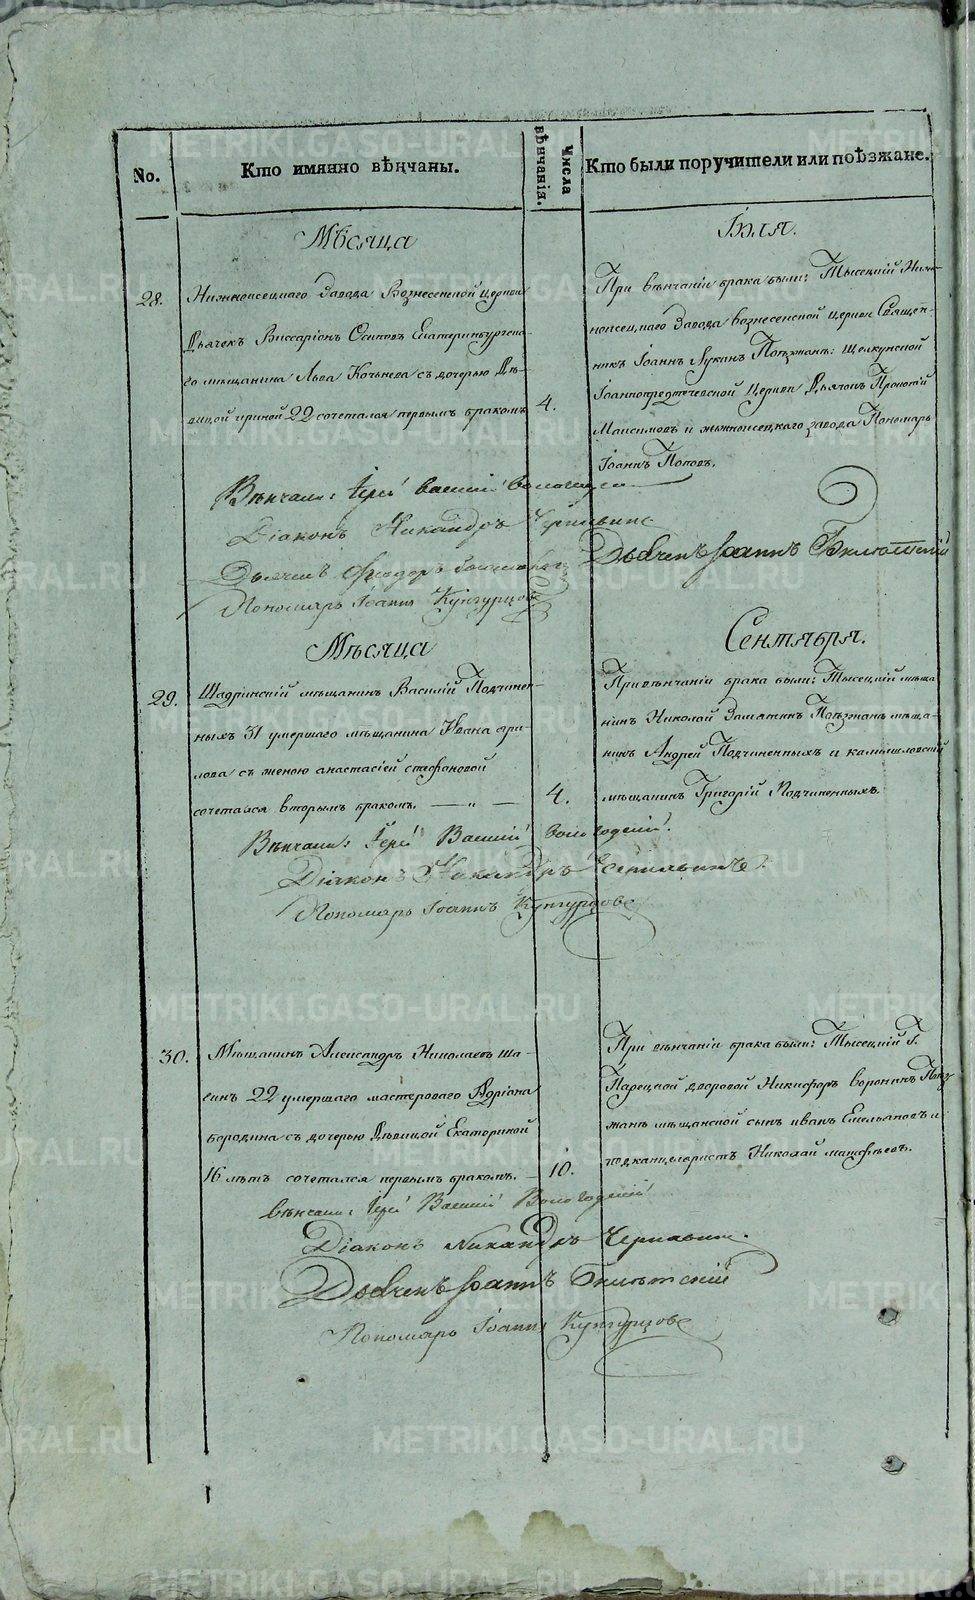 No.
Кто имянно вѣнчаны.
Числа вѣнчанія.
Кто были поручители или поѣзжане.
Мѣсяца
Іюля.
28.
Нижнеисецкаго Завода Вознесенской церкви
Дьячекъ Виссаріонъ Осиповъ Екатеринбургска-
го мѣщанина Льва Кочнева съ дочерью Дѣ-
вицой ириной 22 сочетался первымъ бракомъ
4.
При вѣнчаніи брака были: Тысецкій Ниж-
неисецкаго Завода вознесенской церкви Священ-
никъ Іоаннъ Луканъ Поѣзжанъ: Щелкунской
Іоаннопредтечевской Церкви Дьячекъ
Максимовъ и нижнеисецкаго завода Пономарь
Іоаннъ Поповъ.
Вѣнчали: Іерей Василій
Діаконъ Никандръ Чернавинъ
Дьячекъ Ѳеодоръ
Пономарь Іоаннъ Кунгурцовъ
Дьячекъ Іоаннъ
Мѣсяца
Сентября.
29.
Шадринскій мѣщанинъ Василій Подчинен-
ныхъ 31 умершаго мѣщанина Ивана
съ женою анастасіей стефановой
сочетался вторымъ бракомъ. — „ —
4.
При вѣнчаніи брака были: Тысецкій мѣща
нинъ Николай Замяткинъ Поѣзжанъ мѣща-
нинъ Андрей Подчиненныхъ и камышловскій
мѣщанинъ Григорій Подчиненныхъ.
Вѣнчали: Іерей Василій Вологодскій.
Діаконъ Никандръ Чернавинъ.
Пономарь Іоаннъ Кунгурцовъ
30.
Мѣщанинъ Александръ Николаевъ Ша-
22 умершаго мастероваго Адріана
бородина съ дочерью Дѣвицой Екатериной
16 лѣтъ сочетался первымъ бракомъ. —
10.
При вѣнчаніи брака были: Тысецкій Г.
дворовой Никифоръ воронинъ Поѣз
жанъ мѣщанской сынъ иванъ Емельяновъ и
подканцеляристъ Николай матфѣевъ.
вѣнчали: Іерей Василій Вологодскій
Діаконъ Никандръ Чернавинъ.
Дьячекъ Іоаннъ
Пономарь Іоаннъ Кунгурцовъ
METRIKI.GASO-URAL.RU